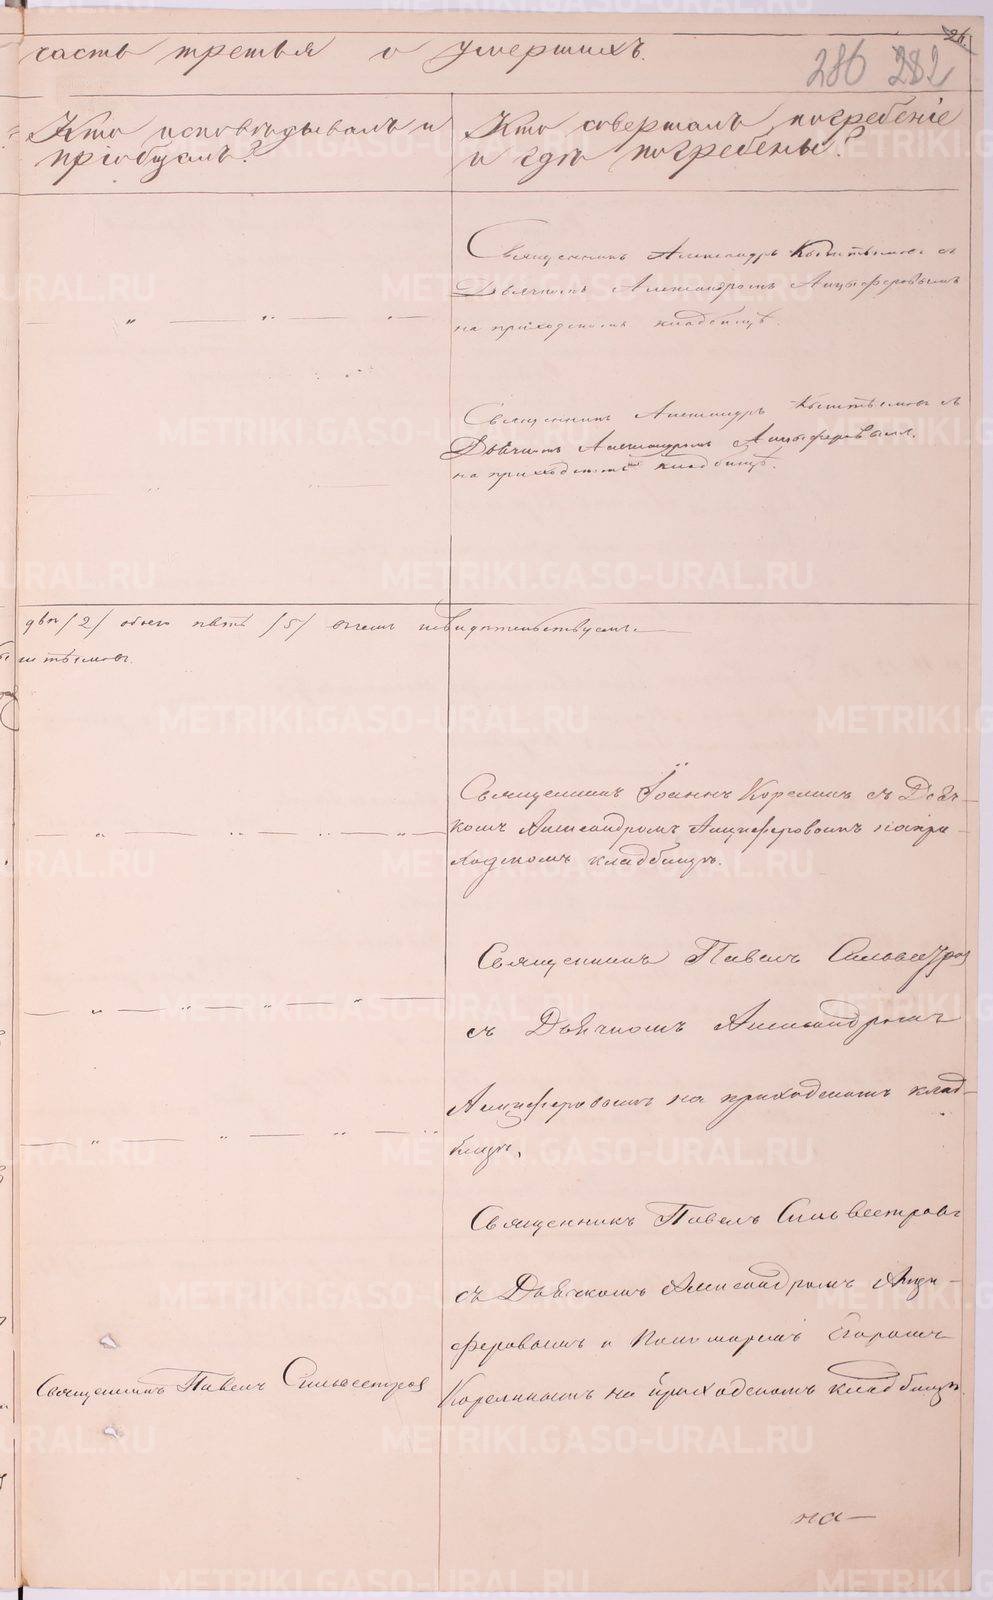 26.
286 282
часть третья о умершихъ.
Кто исповѣдывалъ и
пріобщалъ?
Кто совершалъ погребеніе
и гдѣ погребены?
Священникъ Александръ Кыштымовъ съ
Дьячкомъ Александромъ Анцыферовымъ
на приходскомъ кладбищѣ.
Священникъ Александръ Кыштымовъ съ
Дьячкомъ Александромъ Анцыферовымъ
на приходскомъ кладбищѣ.
двѣ /2/ обоего пять /5/ въ чемъ свидѣтельствуемъ.
штымовъ.
Священникъ Іоаннъ Корелинъ съ Дьяч-
комъ Александромъ Анциферовымъ на при-
ходскомъ кладбищѣ.
Священникъ Павелъ Сильвестровъ
съ Дьячкомъ Александромъ
Анциферовымъ на приходскомъ клад-
бищѣ.
Священникъ Павелъ Сильвестровъ
съ Дьячкомъ Александромъ Анци-
феровымъ и Пономаремъ Егоромъ
Священникъ Павелъ Сильвестровъ
Корелинымъ на приходскомъ кладбищѣ.
на—
METRIKI.GASO-URAL.RU